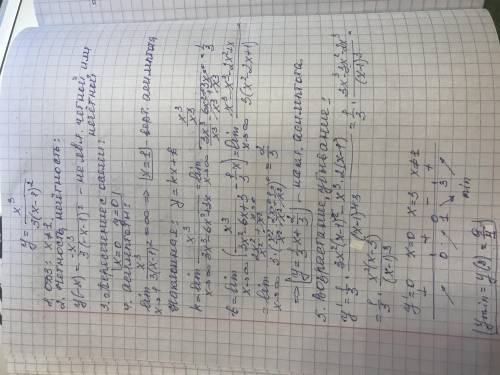 y = x³/(3(x-1)²)
1. ОДЗ: x≠1
2. четность, нечётность:
y(-x) = -x³/(3(-x-1)²) - не явл. четной или
нечётной
3. пересечение с осями:
x=0 y=0
4. асимптоты:
lim x→1 x³/(3(x-1)²) = ∞ ⇒ x=1 - верт. асимптота
наклонная: y = kx+b
k = lim x→∞ x³/(3x³-6x²+3x) = 1/3
b = lim x→∞ (x³/(3x²-6x+3) - 1/3 x) = lim x→∞ (x³-x³+2x²-x)/(3(x²-2x+1))
= 2/3
⇒ y = 1/3 x + 2/3 - накл. асимптота
5. Возрастание, убывание:
y' = 1/3 · (3x²(x-1)²-x³·2(x-1))/(x-1)⁴ = 1/3 · (3x³-3x²-2x³)/(x-1)³
= 1/3 · x²(x-3)/(x-1)³
y'=0 x=0 x=3 x≠1
+ + - +
0 1 3
min
ymin = y(3) = 9/4